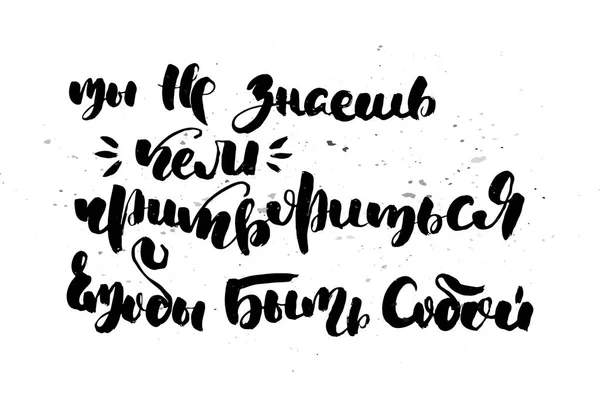 ты не знаешь
кем
притвориться
чтобы быть Собой